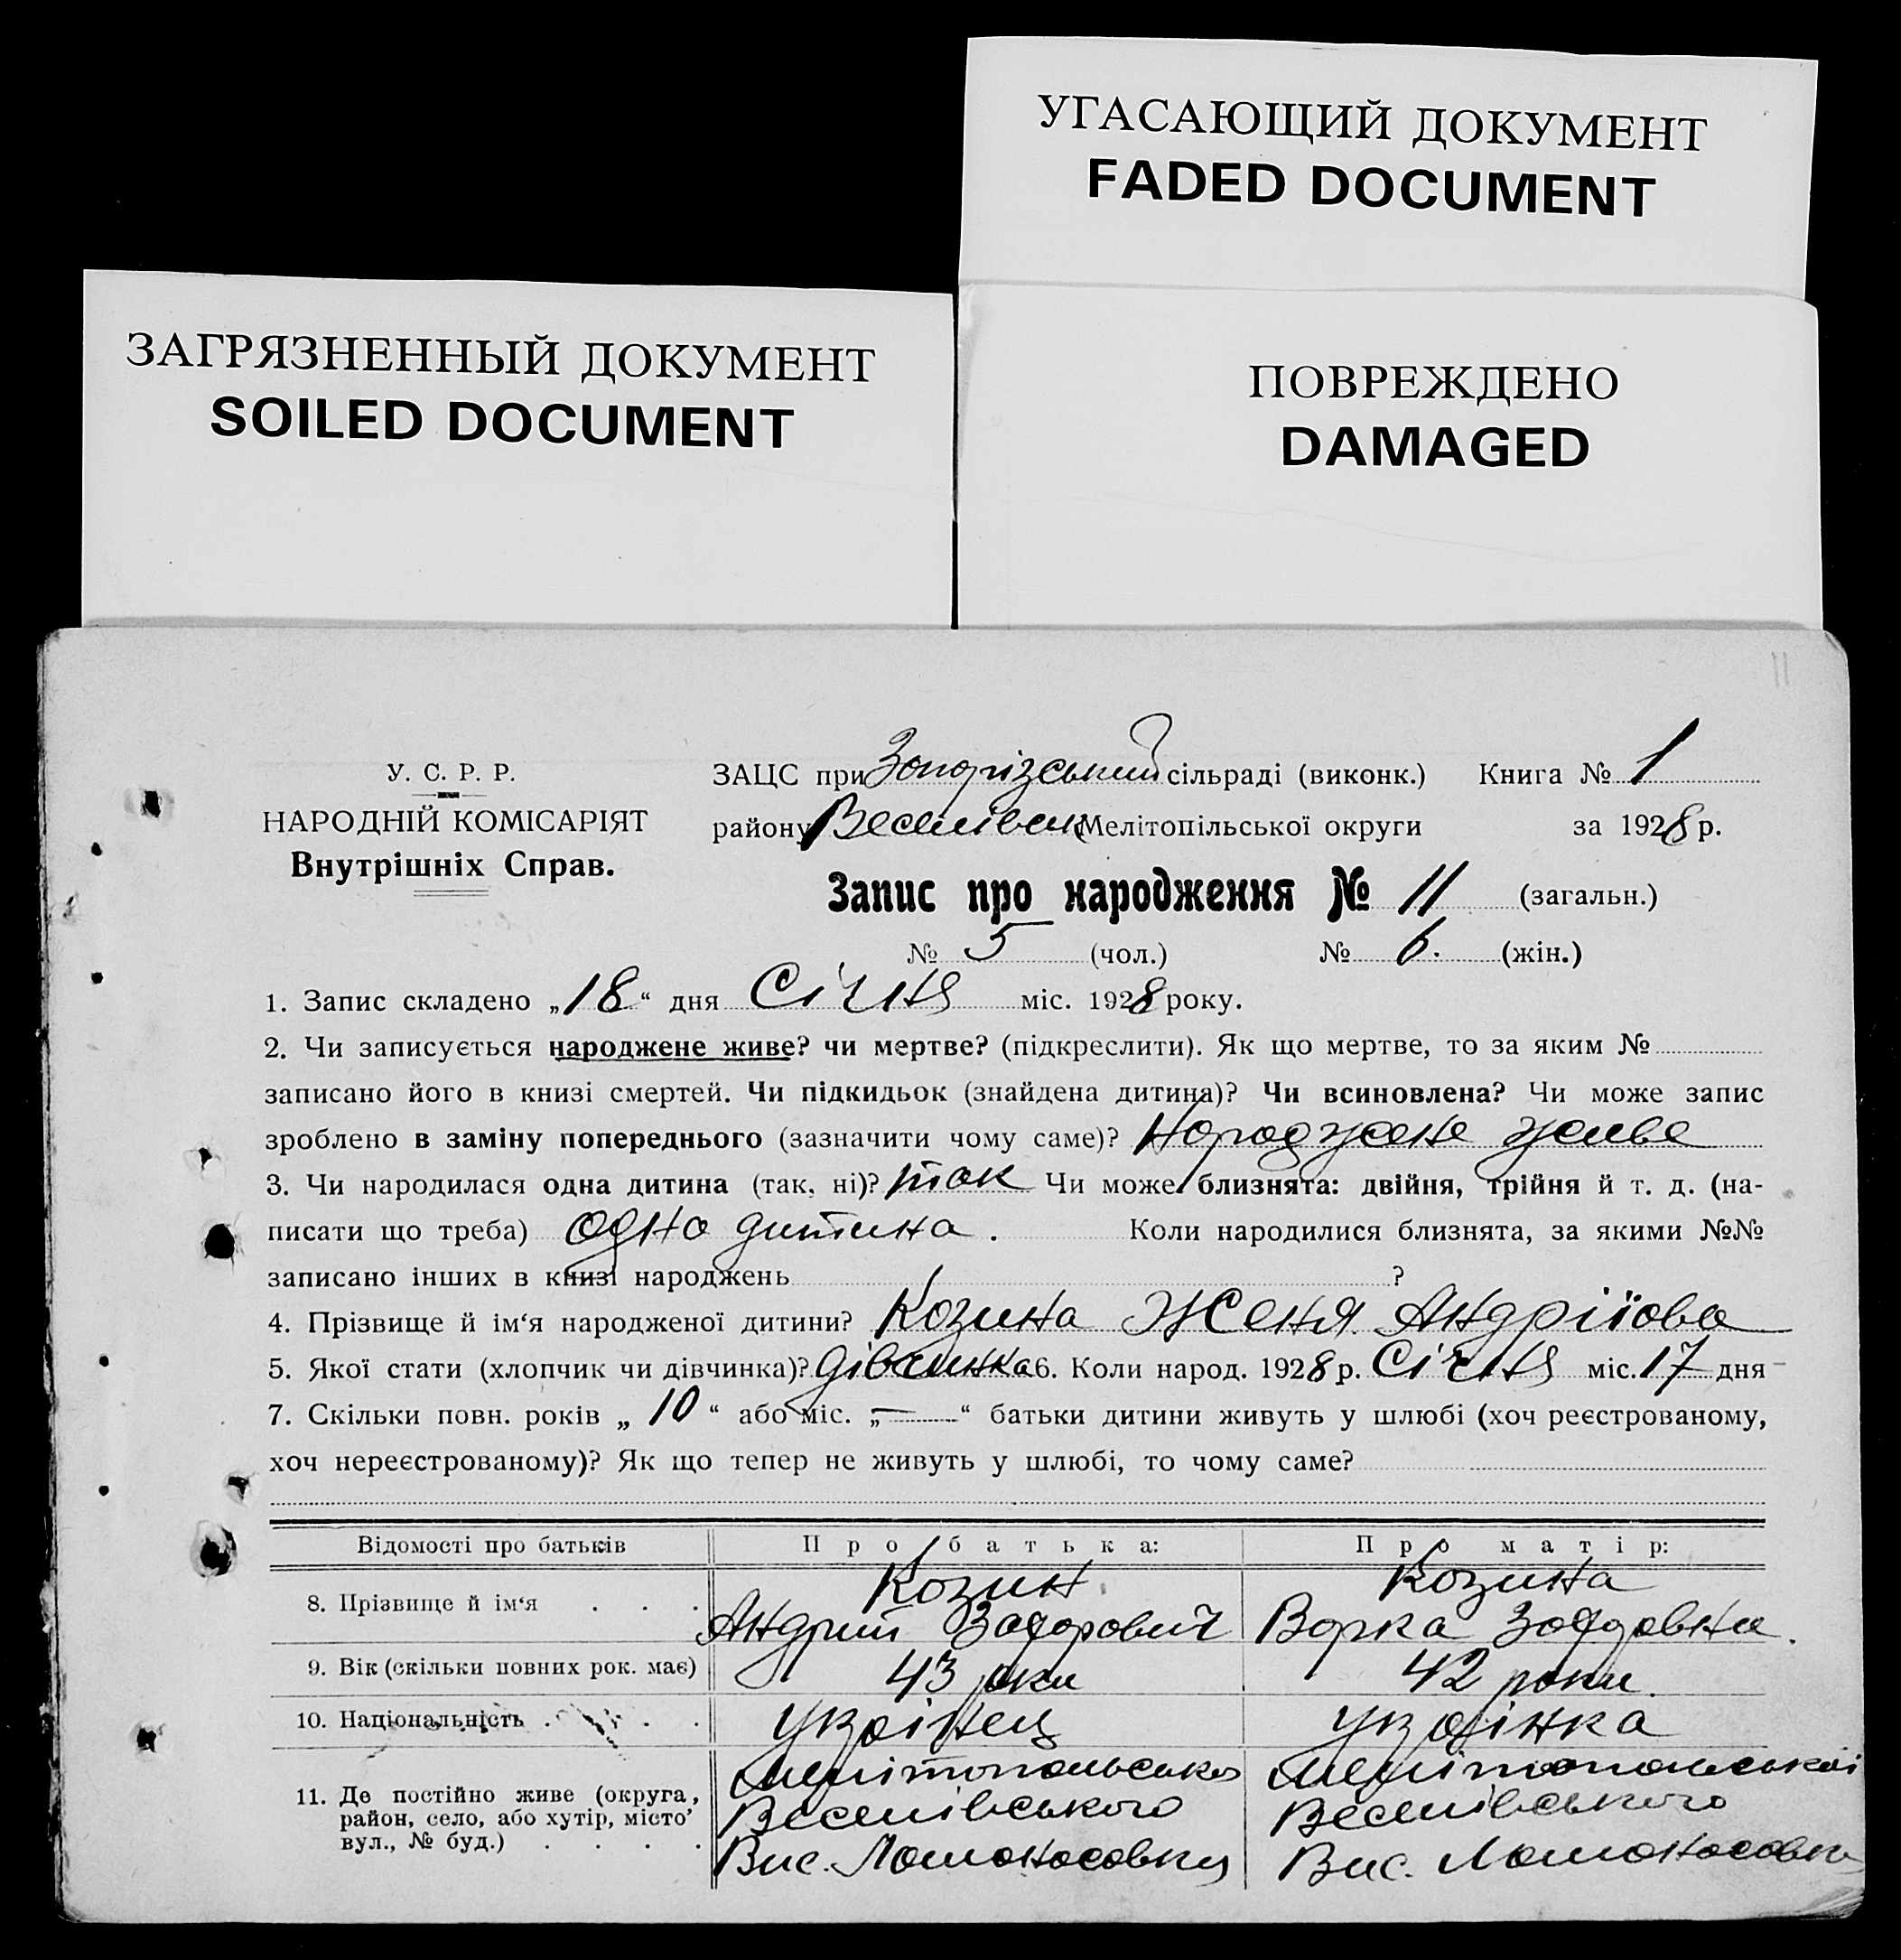 УГАСАЮЩИЙ ДОКУМЕНТ
FADED DOCUMENT
ЗАГРЯЗНЕННЫЙ ДОКУМЕНТ
SOILED DOCUMENT
ПОВРЕЖДЕНО
DAMAGED
11
У. С. Р. Р.
НАРОДНІЙ КОМІСАРІЯТ
Внутрішніх Справ.
ЗАЦС при Запорізський сільраді (виконк.) Книга № 1
району Веселівськ Мелітопільської округи за 1928 р.
Запис про народження № 11 (загальн.)
№ 5 (чол.) № 6. (жін.)
1. Запис складено „18“ дня Січня міс. 1928 року.
2. Чи записується народжене живе? чи мертве? (підкреслити). Як що мертве, то за яким №
записано його в книзі смертей. Чи підкидьок (знайдена дитина)? Чи всиновлена? Чи може запис
зроблено в заміну попереднього (зазначити чому саме)? Народжене живе
3. Чи народилася одна дитина (так, ні)? так Чи може близнята: двійня, трійня й т. д. (на-
писати що треба) одна дитина. Коли народилися близнята, за якими №№
записано інших в книзі народжень ?
4. Прізвище й ім‘я народженої дитини? Козина Женя Андріїова
5. Якої стати (хлопчик чи дівчинка)? дівчинка 6. Коли народ. 1928 р. Січня міс. 17 дня
7. Скільки повн. років „10“ або міс. „—“ батьки дитини живуть у шлюбі (хоч реєстрованому,
хоч нереєстрованому)? Як що тепер не живуть у шлюбі, то чому саме?
Відомості про батьків Про батька: Про матір:
8. Прізвище й ім‘я . . . Козин Козина
Андрий Варка
9. Вік (скільки повних рок. має) 43 роки 42 роки.
10. Національність . . . . Украінец Украінка
11. Де постійно живе (округа, район, село, або хутір, місто’ вул., № буд.) . . . .
Мелітопольська Мелітопольської
Веселівського Веселівського
Вис. Ломоносовка Вис. Ломоносовка